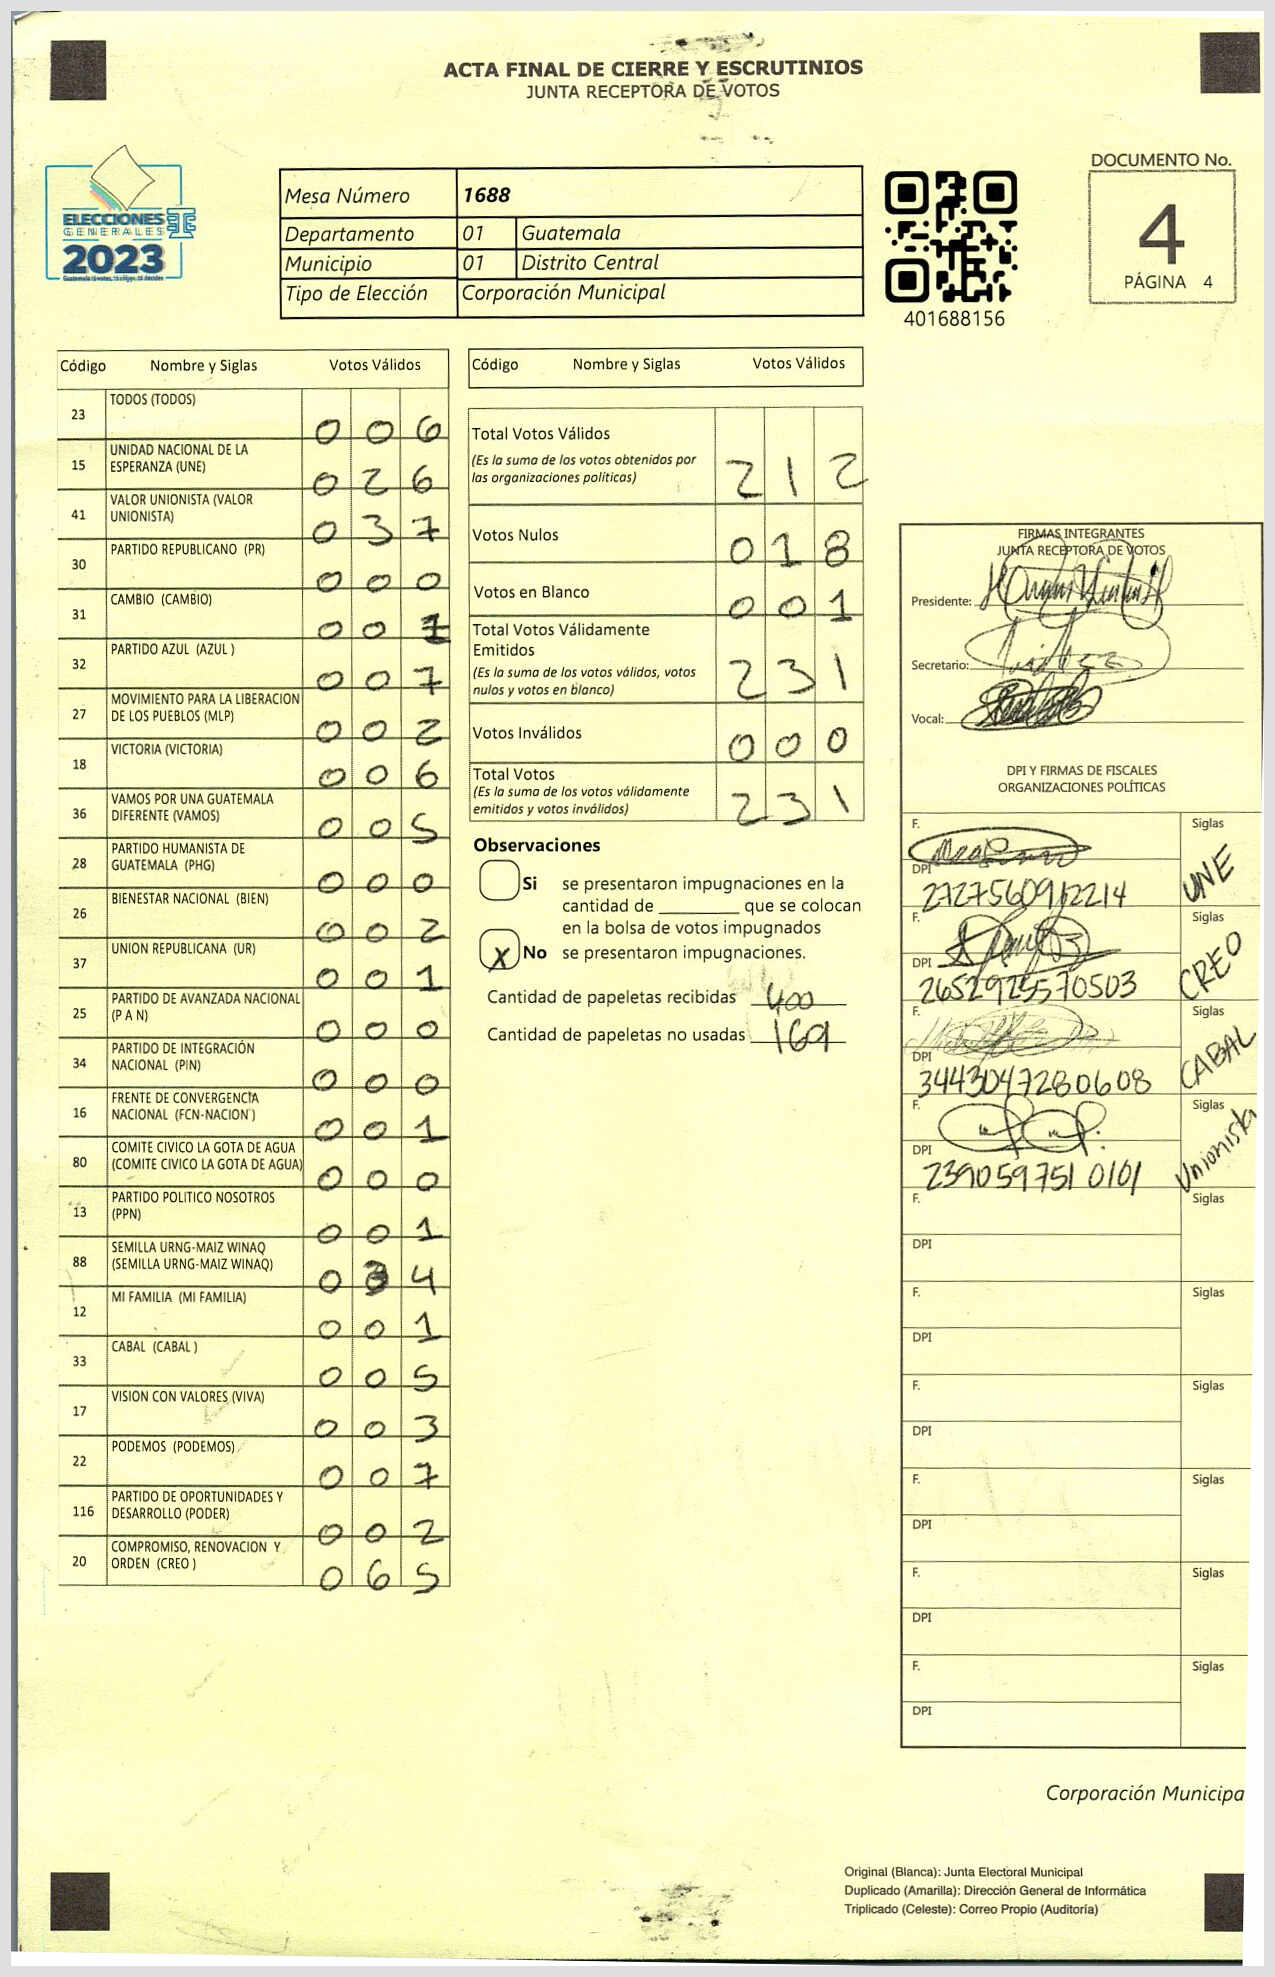 ACTA FINAL DE CIERRE Y ESCRUTINIOS
JUNTA RECEPTORA DE VOTOS
ELECCIONES
GENERALES
2023
Mesa Número 1688
Departamento 01 Guatemala
Municipio 01 Distrito Central
Tipo de Elección Corporación Municipal
401688156
DOCUMENTO No.
4
PÁGINA 4
Código Nombre y Siglas Votos Válidos
23 TODOS (TODOS) 0 0 6
15 UNIDAD NACIONAL DE LA
ESPERANZA (UNE) 0 2 6
41 VALOR UNIONISTA (VALOR
UNIONISTA) 0 3 7
30 PARTIDO REPUBLICANO (PR) 0 0 0
31 CAMBIO (CAMBIO) 0 0 1
32 PARTIDO AZUL (AZUL ) 0 0 7
27 MOVIMIENTO PARA LA LIBERACION
DE LOS PUEBLOS (MLP) 0 0 2
18 VICTORIA (VICTORIA) 0 0 6
36 VAMOS POR UNA GUATEMALA
DIFERENTE (VAMOS) 0 0 5
28 PARTIDO HUMANISTA DE
GUATEMALA (PHG) 0 0 0
26 BIENESTAR NACIONAL (BIEN) 0 0 2
37 UNION REPUBLICANA (UR) 0 0 1
25 PARTIDO DE AVANZADA NACIONAL
(P A N) 0 0 0
34 PARTIDO DE INTEGRACIÓN
NACIONAL (PIN) 0 0 0
16 FRENTE DE CONVERGENCIA
NACIONAL (FCN-NACION ) 0 0 1
80 COMITE CIVICO LA GOTA DE AGUA
(COMITE CIVICO LA GOTA DE AGUA) 0 0 0
13 PARTIDO POLITICO NOSOTROS
(PPN) 0 0 1
88 SEMILLA URNG-MAIZ WINAQ
(SEMILLA URNG-MAIZ WINAQ) 0 3 4
12 MI FAMILIA (MI FAMILIA) 0 0 1
33 CABAL (CABAL ) 0 0 5
17 VISION CON VALORES (VIVA) 0 0 3
22 PODEMOS (PODEMOS) 0 0 7
116 PARTIDO DE OPORTUNIDADES Y
DESARROLLO (PODER) 0 0 2
20 COMPROMISO, RENOVACION Y
ORDEN (CREO ) 0 6 5
Código Nombre y Siglas Votos Válidos
Total Votos Válidos
(Es la suma de los votos obtenidos por
las organizaciones políticas) 2 1 2
Votos Nulos 0 1 8
Votos en Blanco 0 0 1
Total Votos Válidamente
Emitidos
(Es la suma de los votos válidos, votos
nulos y votos en blanco) 2 3 1
Votos Inválidos 0 0 0
Total Votos
(Es la suma de los votos válidamente
emitidos y votos inválidos) 2 3 1
Observaciones
Si se presentaron impugnaciones en la
cantidad de ________ que se colocan
en la bolsa de votos impugnados
X No se presentaron impugnaciones.
Cantidad de papeletas recibidas 400
Cantidad de papeletas no usadas 169
FIRMAS INTEGRANTES
JUNTA RECEPTORA DE VOTOS
Presidente:
Secretario:
Vocal:
DPI Y FIRMAS DE FISCALES
ORGANIZACIONES POLÍTICAS
F. Siglas
DPI UNE
2727560912214
F. Siglas
DPI CREO
2652925570503
F. Siglas
DPI CABAL
3443047280608
F. Siglas
DPI Unionista
2390597510101
F. Siglas
DPI
F. Siglas
DPI
F. Siglas
DPI
F. Siglas
DPI
F. Siglas
DPI
F. Siglas
DPI
Corporación Municipa
Original (Blanca): Junta Electoral Municipal
Duplicado (Amarilla): Dirección General de Informática
Triplicado (Celeste): Correo Propio (Auditoría)